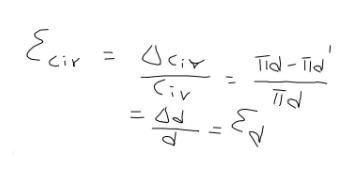 ε_cir = Δcir/cir = πd-πd'/πd
= Δd/d = ε_d